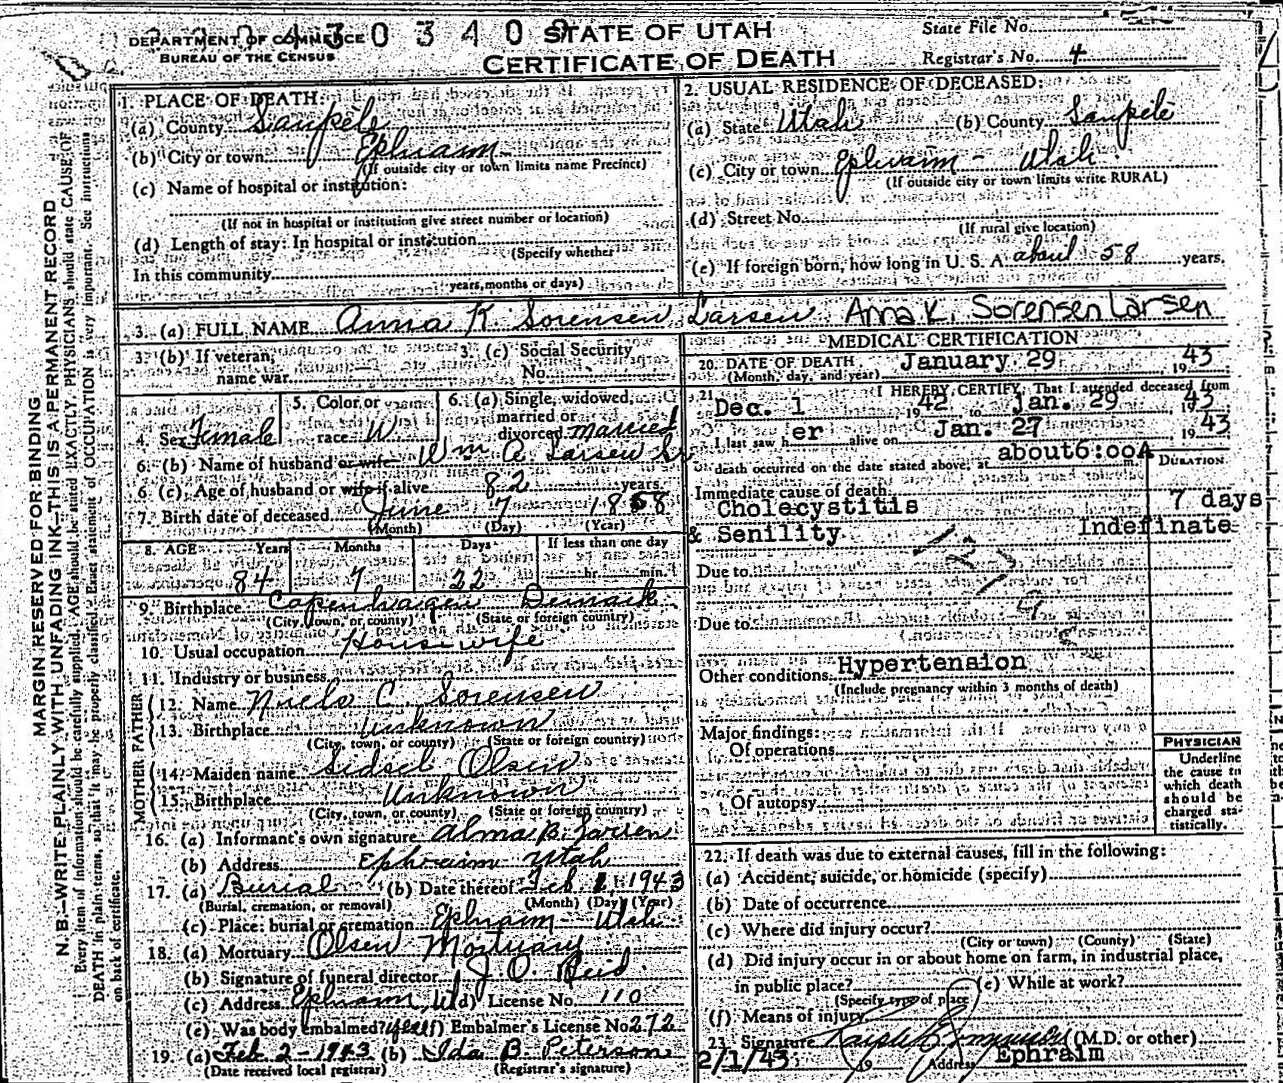 DEPARTMENT OF COMMERCE
BUREAU OF THE CENSUS
4 3 0 3 4 0
STATE OF UTAH
CERTIFICATE OF DEATH
State File No.
Registrar's No. 4
MARGIN RESERVED FOR BINDING
N. B.—WRITE PLAINLY WITH UNFADING INK—THIS IS A PERMANENT RECORD
Every item of information should be carefully supplied. AGE should be stated EXACTLY. PHYSICIANS should state CAUSE OF
DEATH in plain terms, so that it may be properly classified. Exact statement of OCCUPATION is very important. See instructions
on back of certificate.
1. PLACE OF DEATH:
(a) County Sanpete
(b) City or town Ephraim
(If outside city or town limits name Precinct)
(c) Name of hospital or institution:
(If not in hospital or institution give street number or location)
(d) Length of stay: In hospital or institution
(Specify whether
In this community
years, months or days)
2. USUAL RESIDENCE OF DECEASED:
(a) State Utah (b) County Sanpete
(c) City or town Ephraim - Utah
(If outside city or town limits write RURAL)
(d) Street No.
(If rural give location)
(e) If foreign born, how long in U. S. A. about 58 years.
3. (a) FULL NAME Anna K. Sorensen Larsen Anna K. Sorensen Larsen
3. (b) If veteran,
name war
3. (c) Social Security
No.
4. Sex Female
5. Color or
race W
6. (a) Single, widowed,
married or
divorced married
6. (b) Name of husband or wife Wm. A. Larsen Sr
6. (c) Age of husband or wife if alive 82 years.
7. Birth date of deceased June 7 1858
(Month) (Day) (Year)
8. AGE Years Months Days If less than one day
84 7 22 hr. min.
9. Birthplace Copenhagen Denmark
(City, town, or county) (State or foreign country)
10. Usual occupation Housewife
11. Industry or business
FATHER
12. Name Niels C. Sorensen
13. Birthplace Unknown
(City, town, or county) (State or foreign country)
MOTHER
14. Maiden name Sidsel Olsen
15. Birthplace Unknown
(City, town, or county) (State or foreign country)
16. (a) Informant's own signature Alma B. Larsen
(b) Address Ephraim Utah
17. (a) Burial (b) Date thereof Feb. 1, 1943
(Burial, cremation, or removal) (Month) (Day) (Year)
(c) Place: burial or cremation Ephraim - Utah
18. (a) Mortuary Olsen Mortuary
(b) Signature of funeral director J. O. Reid
(c) Address Ephraim, U (d) License No. 110
(e) Was body embalmed? yes (f) Embalmer's License No 272
19. (a) Feb 2 - 1943 (b) Ida B. Peterson
(Date received local registrar) (Registrar's signature)
MEDICAL CERTIFICATION
20. DATE OF DEATH January 29 19 43
(Month, day, and year)
21. I HEREBY CERTIFY, That I attended deceased from
Dec. 1 19 42 to Jan. 29 19 43
I last saw h er alive on Jan. 27 19 43
death occurred on the date stated above, at about6:00A m. DURATION
Immediate cause of death
Cholecystitis 7 days
& Senility Indefinate
Due to
Due to
Other conditions Hypertension
(Include pregnancy within 3 months of death)
Major findings:
Of operations
Of autopsy
PHYSICIAN
Underline
the cause to
which death
should be
charged sta-
tistically.
22. If death was due to external causes, fill in the following:
(a) Accident, suicide, or homicide (specify)
(b) Date of occurrence
(c) Where did injury occur?
(City or town) (County) (State)
(d) Did injury occur in or about home on farm, in industrial place,
in public place? (e) While at work?
(Specify type of place
(f) Means of injury
23. Signature (M.D. or other)
2/1/43 19 Address Ephraim